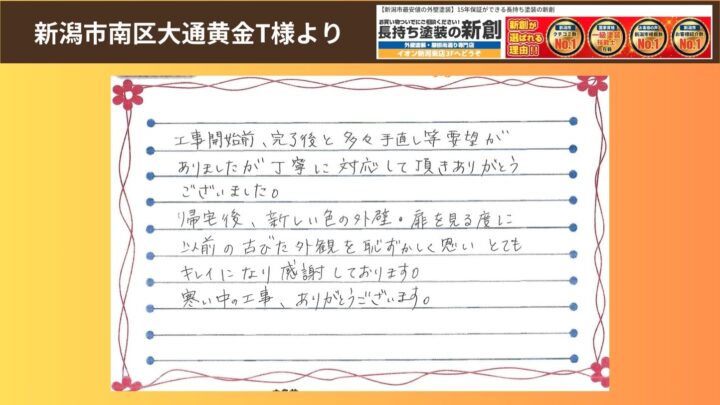 新潟市南区大通黄金T様より
【新潟市最安値の外壁塗装】15年保証ができる長持ち塗装の新創
お買い物ついでにご相談ください!
長持ち塗装の新創
外壁塗装・屋根雨漏り専門店
イオン新潟南店3Fへどうぞ
新創が
選ばれる
理由!!
クチコミ数
NO.1
一級塗装
技能士
NO.1
NO.1
NO.1
工事開始前、完了後と多々手直し等要望が
ありましたが丁寧に対応して頂きありがとう
ございました。
帰宅後、新しい色の外壁・扉を見る度に
以前の古びた外観を恥ずかしく思いとても
キレイになり感謝しております。
寒い中の工事、ありがとうございます。